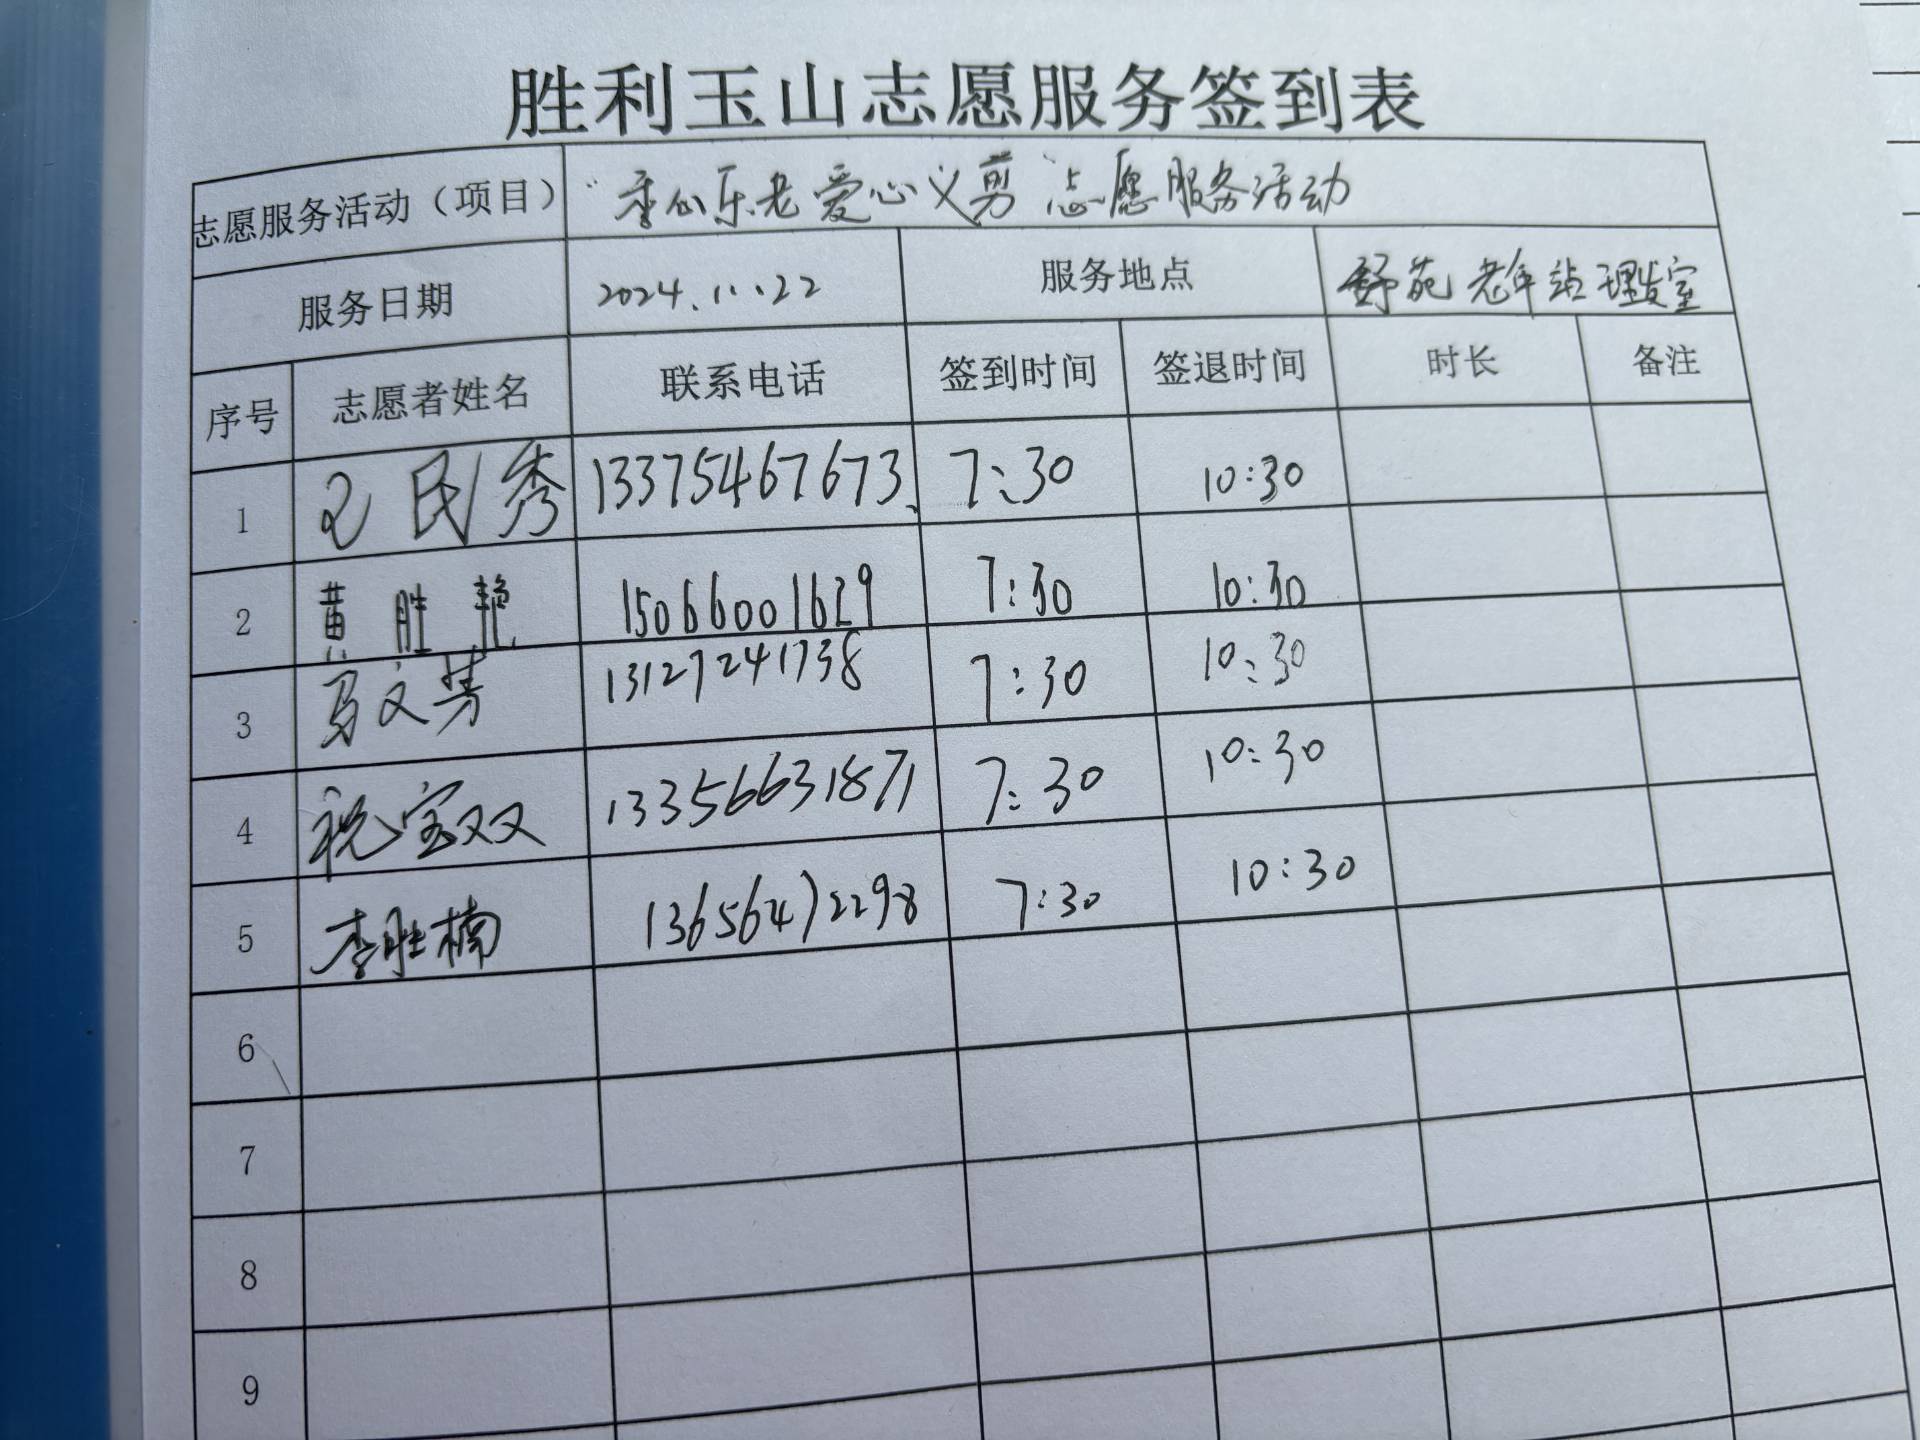 胜利玉山志愿服务签到表
志愿服务活动（项目） 乐老爱心义剪 志愿服务活动
服务日期 2024.11.22 服务地点 舒苑老年站理发室
序号 志愿者姓名 联系电话 签到时间 签退时间 时长 备注
1 王民秀 13375467673 7:30 10:30
2 黄胜艳 15066001629 7:30 10:30
3 马文芳 13127241738 7:30 10:30
4 祝宝双 13356631871 7:30 10:30
5 李胜楠 13656472298 7:30 10:30
6
7
8
9